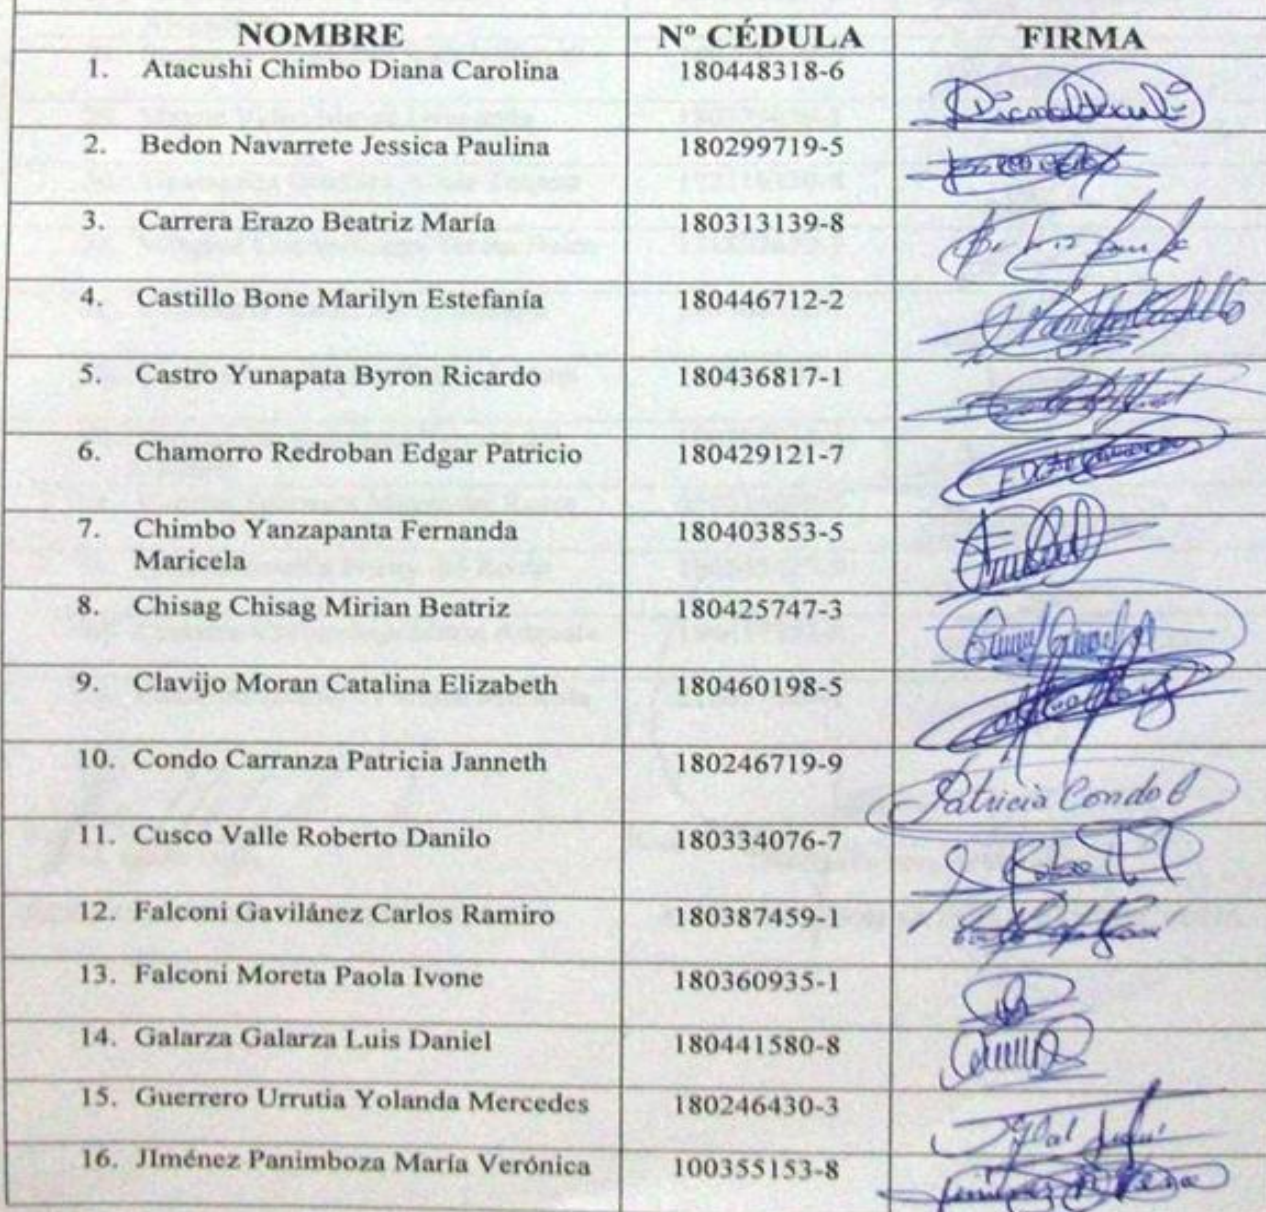 NOMBRE Nº CÉDULA FIRMA
1. Atacushi Chimbo Diana Carolina 180448318-6
2. Bedon Navarrete Jessica Paulina 180299719-5
3. Carrera Erazo Beatriz María 180313139-8
4. Castillo Bone Marilyn Estefanía 180446712-2
5. Castro Yunapata Byron Ricardo 180436817-1
6. Chamorro Redroban Edgar Patricio 180429121-7
7. Chimbo Yanzapanta Fernanda 180403853-5
Maricela
8. Chisag Chisag Mirian Beatriz 180425747-3
9. Clavijo Moran Catalina Elizabeth 180460198-5
10. Condo Carranza Patricia Janneth 180246719-9 Patricia Condo C
11. Cusco Valle Roberto Danilo 180334076-7
12. Falconi Gavilánez Carlos Ramiro 180387459-1
13. Falconi Moreta Paola Ivone 180360935-1
14. Galarza Galarza Luis Daniel 180441580-8
15. Guerrero Urrutia Yolanda Mercedes 180246430-3
16. JIménez Panimboza María Verónica 100355153-8